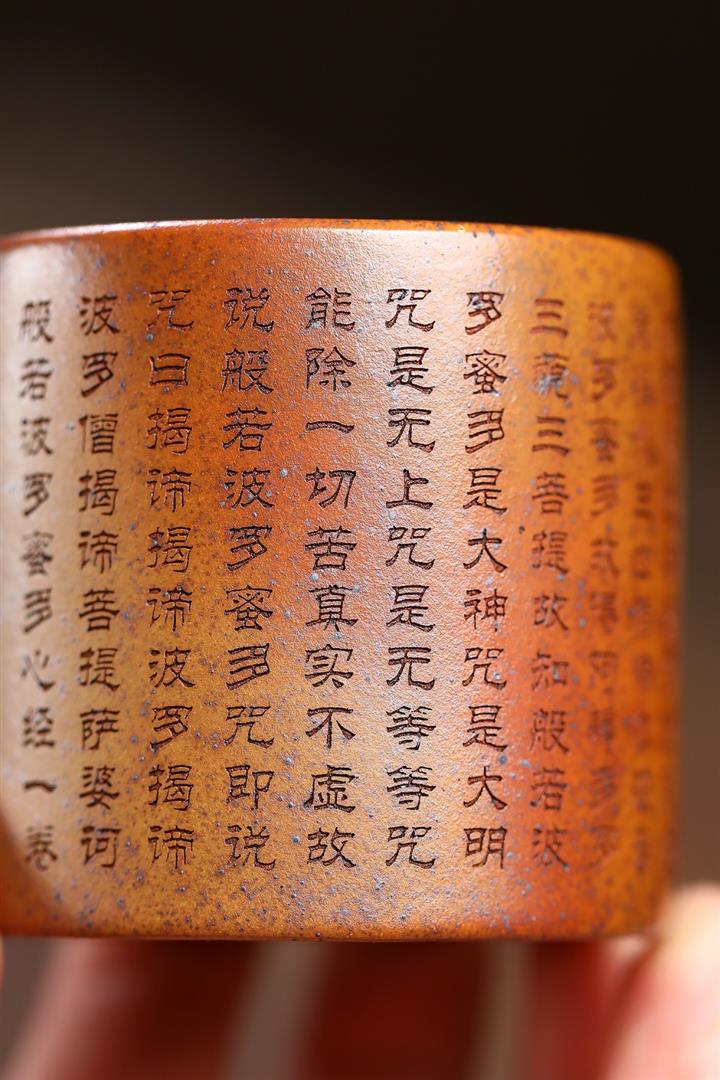 波罗蜜多故得阿耨多罗
三藐三菩提故知般若波
罗蜜多是大神咒是大明
咒是无上咒是无等等咒
能除一切苦真实不虚故
说般若波罗蜜多咒即说
咒曰揭谛揭谛波罗揭谛
波罗僧揭谛菩提萨婆诃
般若波罗蜜多心经一卷